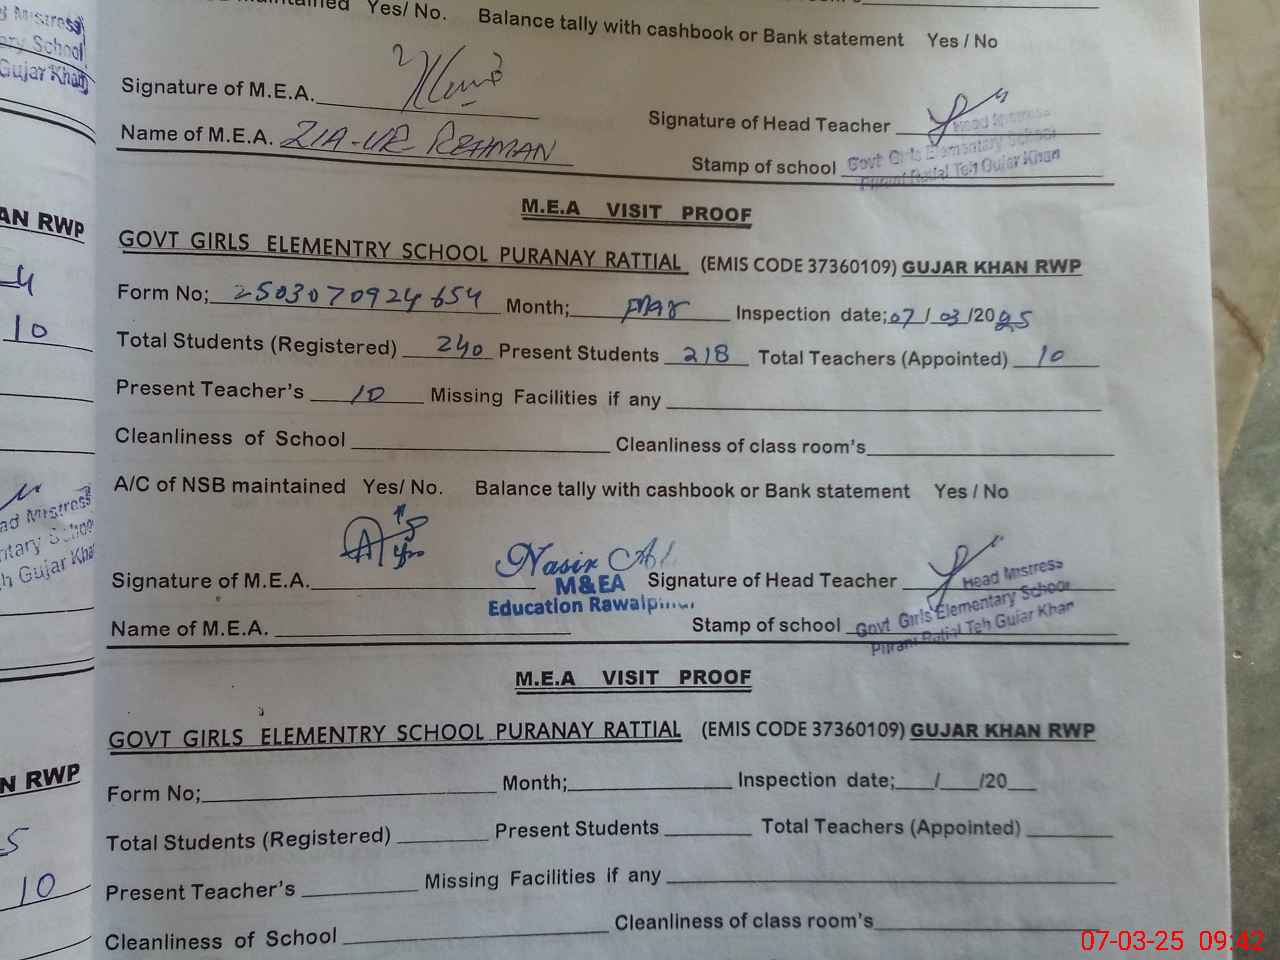 d Mistress
ary School
Gujar Khan
AN RWP
4
10
ad Mistress
ntary School
h Gujar Kha
N RWP
5
10
maintained Yes/ No. Balance tally with cashbook or Bank statement Yes / No
Signature of M.E.A.
Signature of Head Teacher
Head Mistress
Name of M.E.A. ZIA-UR REHMAN
Stamp of school Govt Girls Elementary School
Purani Ratial Teh Gujar Khan
M.E.A VISIT PROOF
GOVT GIRLS ELEMENTRY SCHOOL PURANAY RATTIAL (EMIS CODE 37360109) GUJAR KHAN RWP
Form No; 2503070924654 Month; Mar Inspection date; 07/03/2025
Total Students (Registered) 240 Present Students 218 Total Teachers (Appointed) 10
Present Teacher's 10 Missing Facilities if any
Cleanliness of School Cleanliness of class room's
A/C of NSB maintained Yes/ No. Balance tally with cashbook or Bank statement Yes / No
Nasir
Signature of M.E.A. M&EA Signature of Head Teacher Head Mistress
Education Rawalpindi
Name of M.E.A. Stamp of school Govt Girls Elementary School
Purani Ratial Teh Gujar Khan
M.E.A VISIT PROOF
GOVT GIRLS ELEMENTRY SCHOOL PURANAY RATTIAL (EMIS CODE 37360109) GUJAR KHAN RWP
Form No; Month; Inspection date; / /20
Total Students (Registered) Present Students Total Teachers (Appointed)
Present Teacher's Missing Facilities if any
Cleanliness of School Cleanliness of class room's
07-03-25 09:42